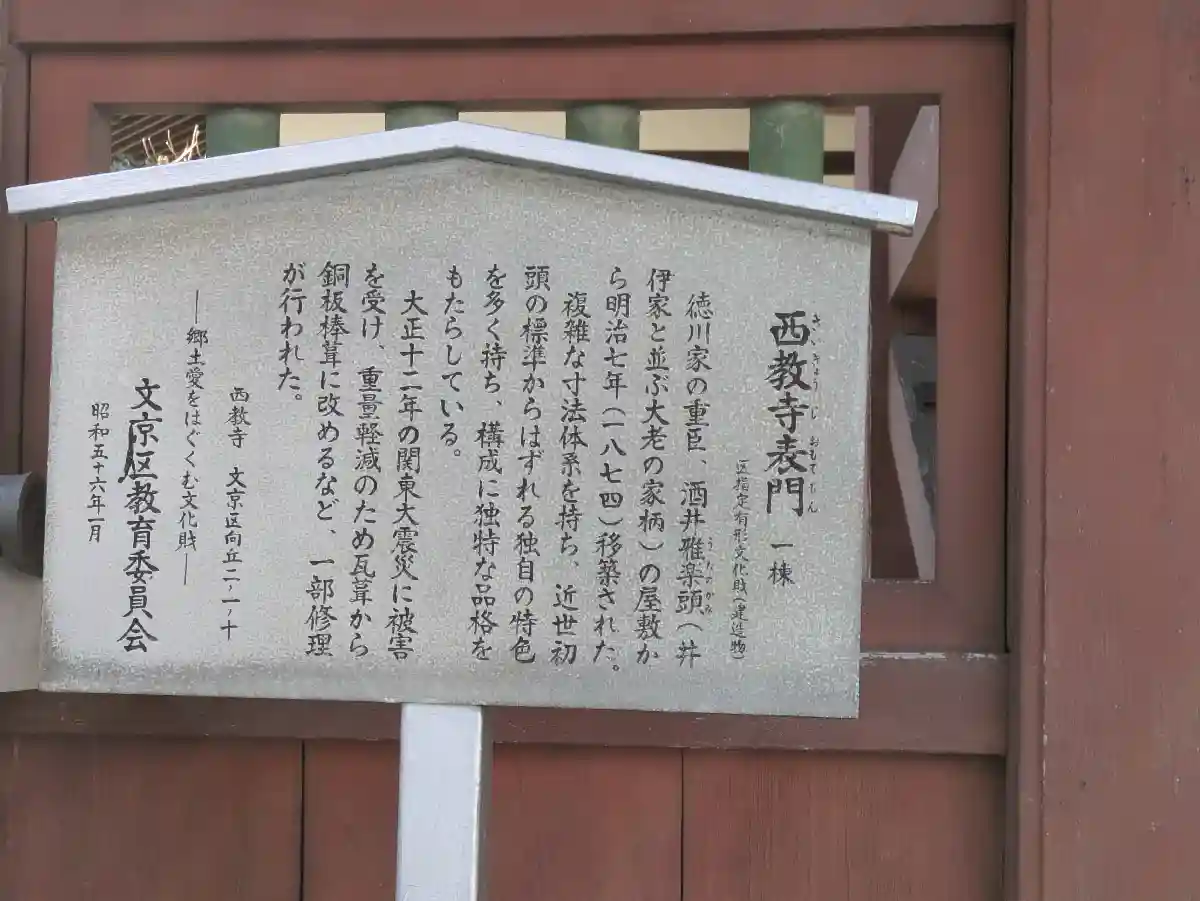 西教寺表門 一棟
さいきょうじおもてもん
区指定有形文化財(建造物)
徳川家の重臣、酒井雅楽頭(井
うたのかみ
伊家と並ぶ大老の家柄)の屋敷か
ら明治七年(一八七四)移築された。
複雑な寸法体系を持ち、近世初
頭の標準からはずれる独自の特色
を多く持ち、構成に独特な品格を
もたらしている。
大正十二年の関東大震災に被害
を受け、重量軽減のため瓦葺から
銅板棒葺に改めるなど、一部修理
が行われた。
西教寺 文京区向丘二,一,十
―郷土愛をはぐくむ文化財―
文京区教育委員会
昭和五十六年一月